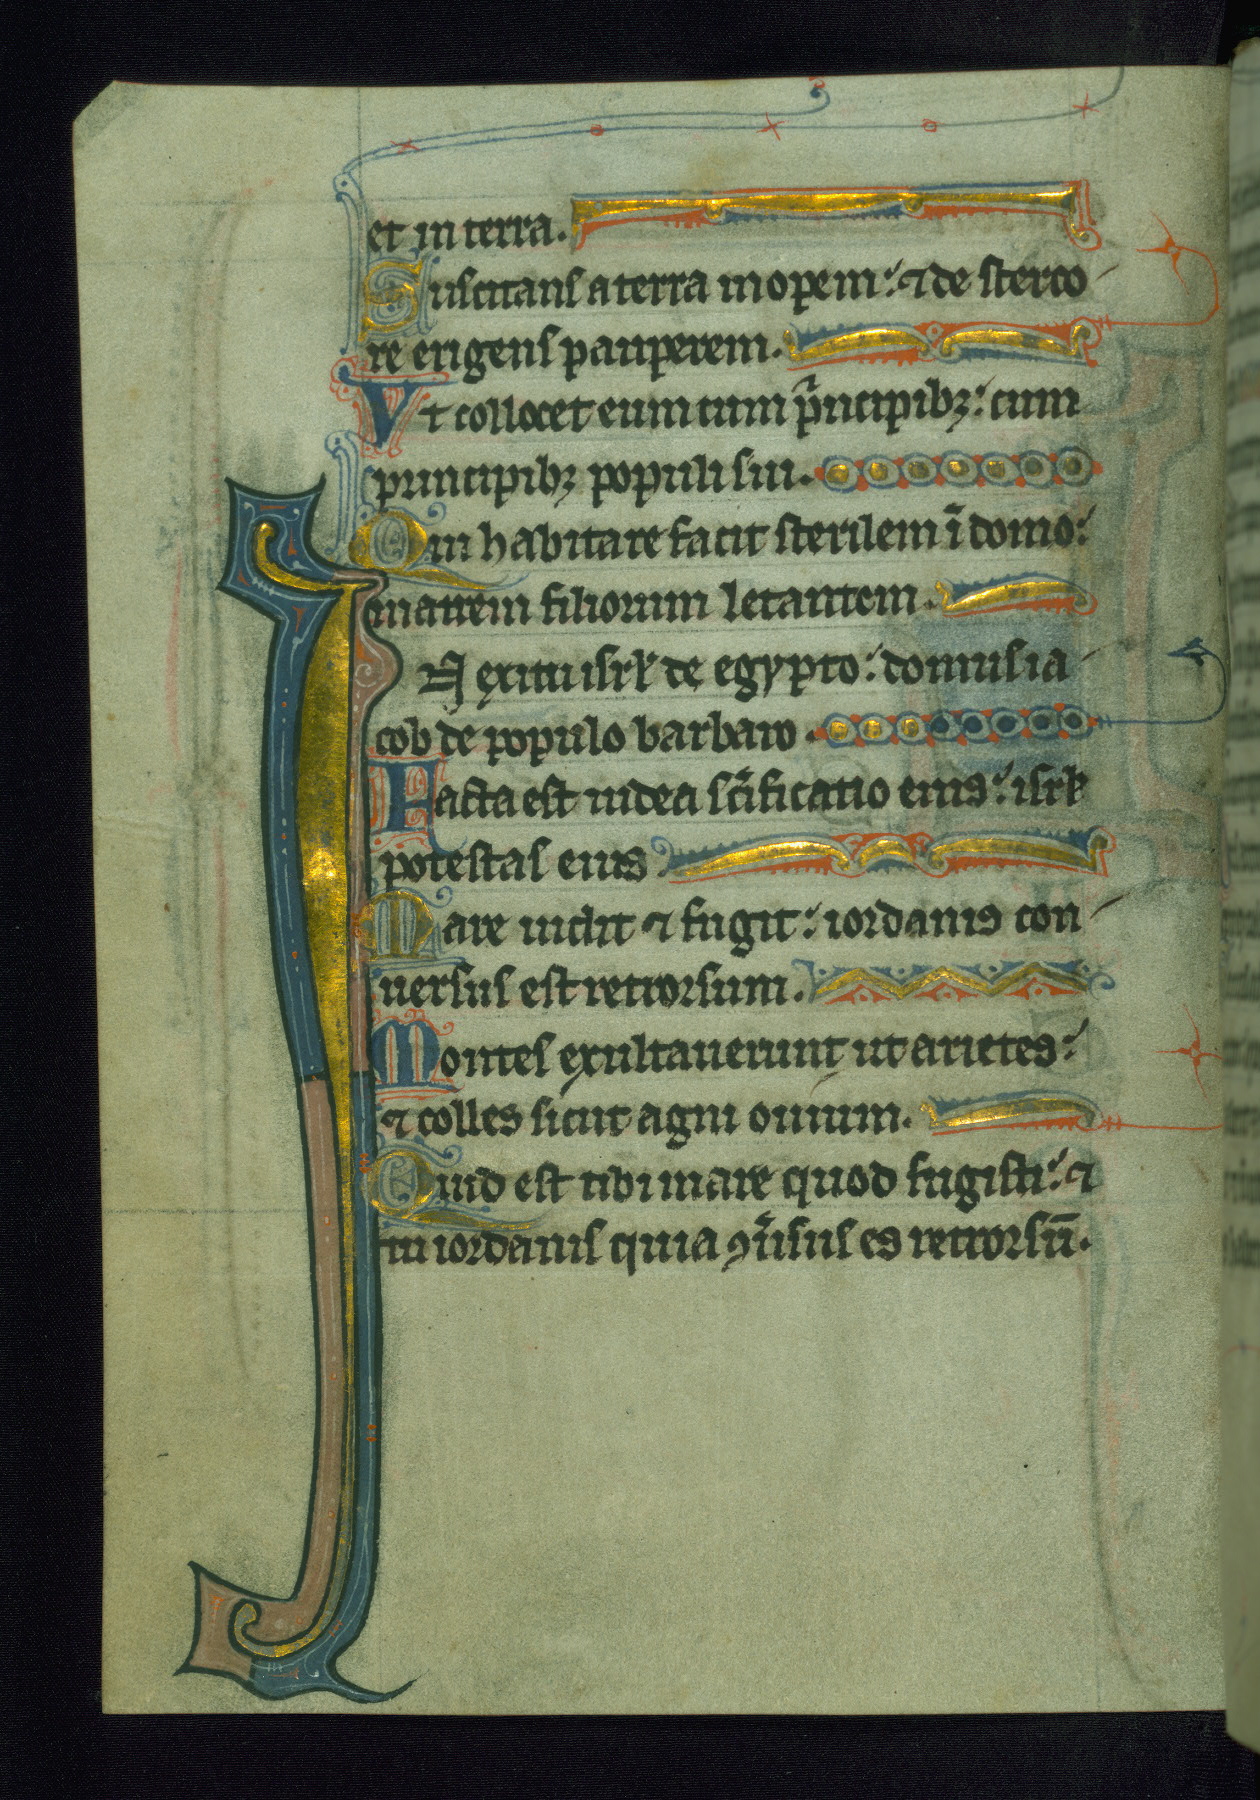 et in terra.
Suscitans a terra inopem: ⁊ de sterco
re erigens pauperem.
Vt collocet eum cum pͥncipibꝫ: cum
principibꝫ populi sui.
Qui habitare facit sterilem ī domo:
matrem filiorum letantem.
IN exitu isrł de egypto: domus ia
cob de populo barbaro.
Facta est iudea sc̄ificatio eius: isrł
potestas eius.
Mare uidit ⁊ fugit: iordanis con
uersus est retrorsum.
Montes exultauerunt ut arietes:
⁊ colles sicut agni ouium.
Quid est tibi mare quod fugisti: ⁊
tu iordanis quia ꝯu̾sus es retrorsū.